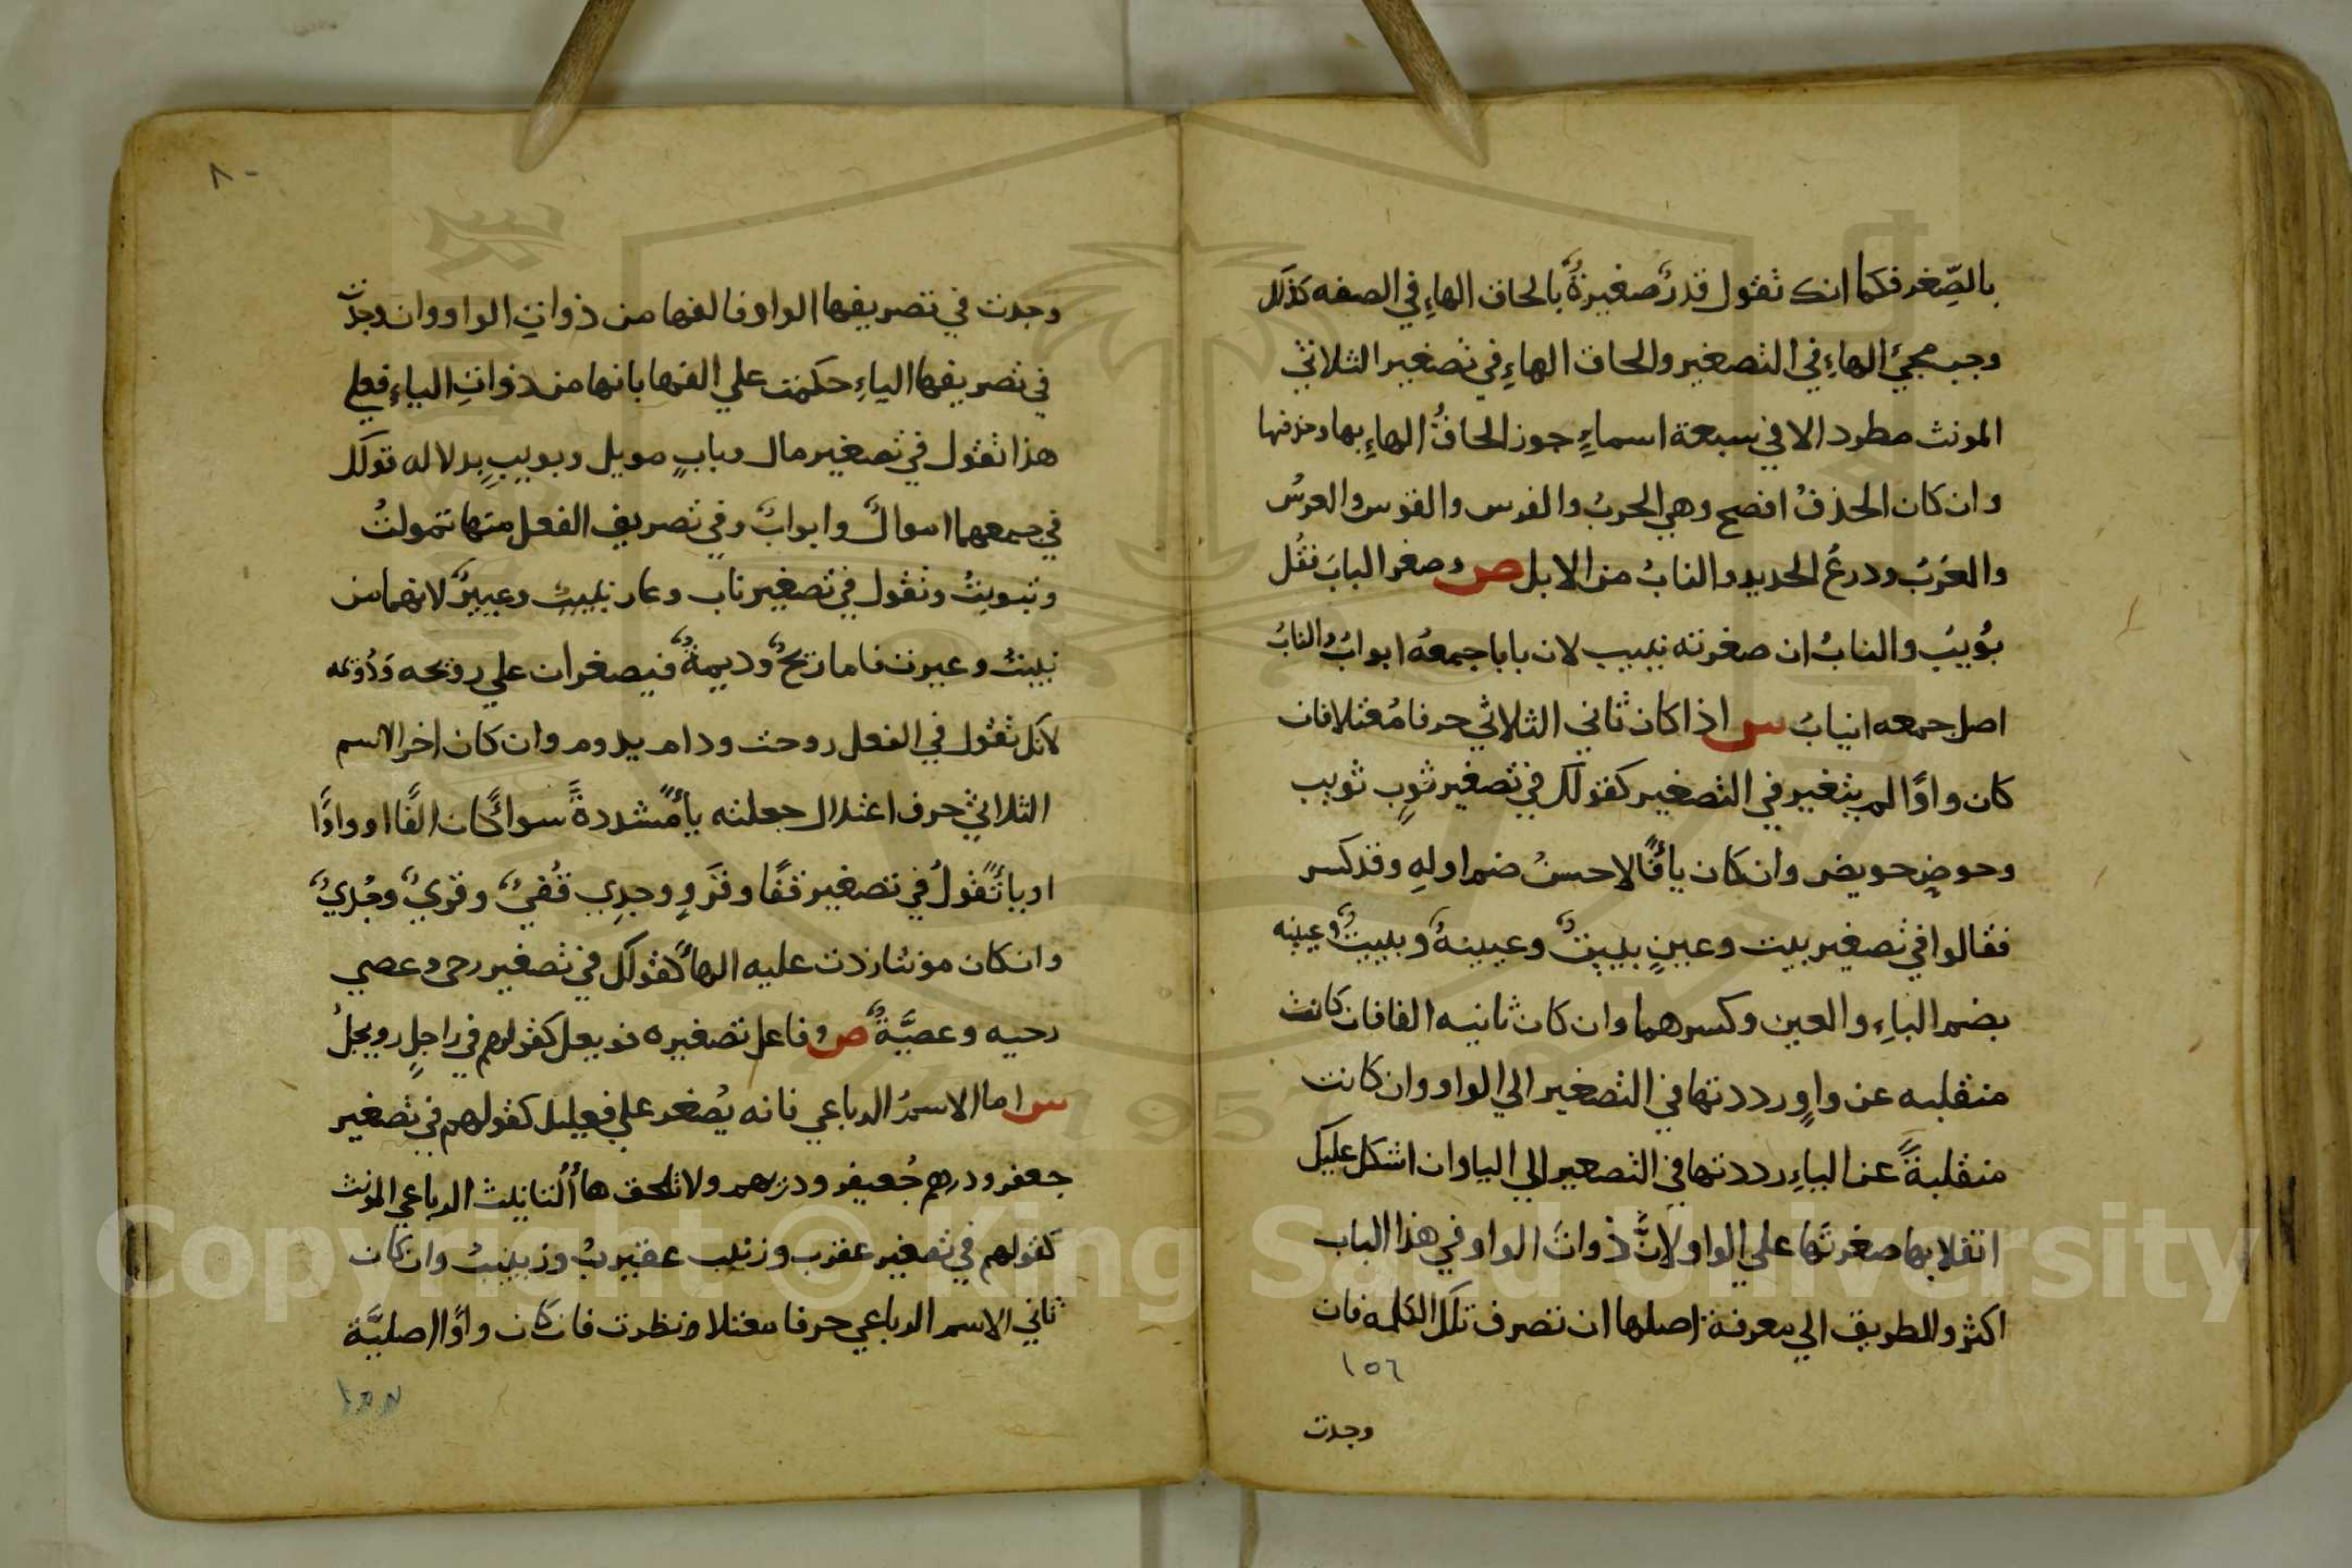 بالصِّغر فكما انك تقول قدرٌ صغيرةٌ بالحاق الهاءِ في الصفه كذلك
وجب مجئ الهاءِ في التصغير والحاق الهاءِ في تصغير الثلاثي
المونث مطرد الا في سبعة اسماءٍ جوز الحاقُ الهاءِ بها وحذفها
وان كان الحذفُ افصح وهي الحربُ والفرس والقوس والعرسُ
والعَرَبُ ودرعُ الحديد والنابُ من الابل ص وصغر البابَ تقُل
بُوَيبُ والنابُ ان صغرته نييب لان بابا جمعهُ ابوابُ والنابُ
اصل جمعه انيابُ س اذا كان ثاني الثلاثي حرفا مُعتلا فان
كان واوًا لم يتغير في التصغير كقولك في تصغير ثوبٍ ثويب
وحوضٍ حويض وان كان ياءً فالاحسنُ ضم اولهِ وقد كسر
فقالوا في تصغير بيت وعينٍ بييتٌ وعيينةٌ وبييتٌ وعيينه
بضم الباءِ والعين وكسرهما وان كان ثانيه الفا فان كانت
منقلبه عن واوٍ رددتها في التصغير الي الواو وان كانت
منقلبةً عن الياءِ رددتها في التصغير الي اليا وان اشكل عليك
انقلابها صغرتَها علي الواو لانَّ ذواتَ الواو في هذا الباب
اكثر والطريق الي معرفة اصلها ان تصرف تلك الكلمه فان
١٥٦
وجدت
٨٠
وجدت في تصريفها الواو فالفها من ذواتِ الواو وان وجدت
في تصريفها الياءِ حكمت علي الفها بانها من ذواتِ الياءِ فعلي
هذا تقول في تصغير مال وبابٍ مويل وبويبٍ بدلاله قولك
في جمعهما اموالٌ وابوابٌ وفي تصريف الفعل منها تمولتُ
وتبوبتُ وتقول في تصغير ناب وعار نييبٌ وعييرٌ لانهما من
نيبتُ وعيرت فاما ريحٌ وديمةٌ فيصغران علي رويحه ودُويمه
لانك تقول في الفعل روحت ودام يدوم وان كان اخر الاسم
الثلاثي حرف اعتلال جعلته ياءً مشددةً سواءً كان الفًا او واوًا
او ياءً تقولُ في تصغير قفًا وقَروٍ وجدي قُفيٌ وقُريٌ وجُديٌ
وان كان مونثا زدت عليه الهاءَ كقولك في تصغير رحى وعصي
رحيه وعصيَّةٌ ص وفاعل تصغيره فويعل كقولهم في راجلٍ رويجلُ
س اما الاسمُ الرباعي فانه يُصغر علي فعيلل كقولهم في تصغير
جعفر ودرهم جُعيفر ودريهم ولا تلحق هاءُ التانيث الرباعي المونث
كقولهم في تصغير عقرب وزينب عقيربُ وزيينبُ وان كان
ثاني الاسم الرباعي حرفا معتلا نظرت فان كان واوًا اصليَّة
Copyright © King Saud University
1957